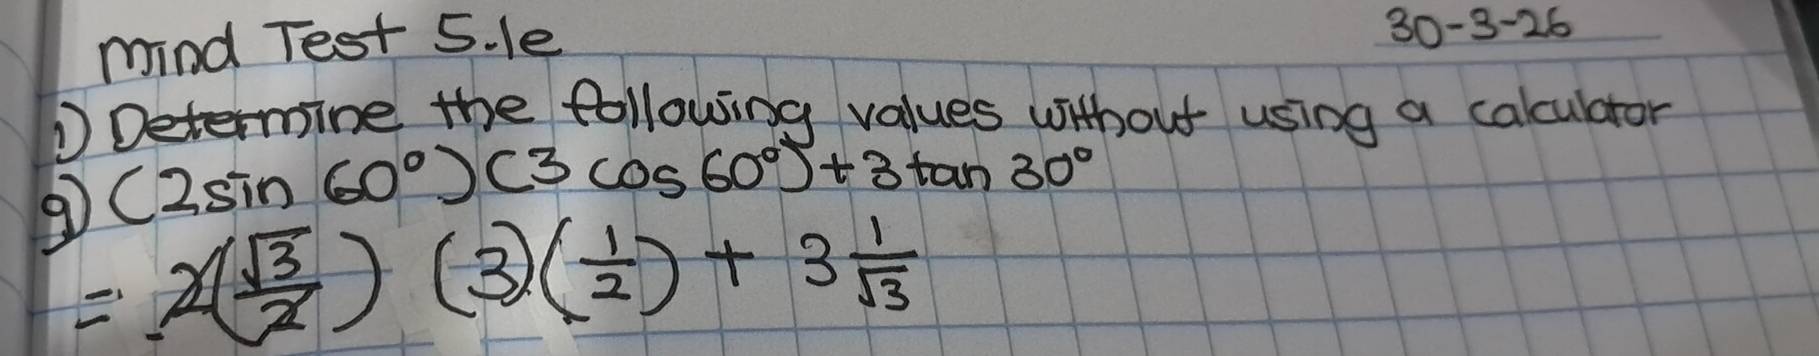 Mind Test 5.1e 30-3-26
1) Determine the following values without using a calculator
g) (2sin 60°)(3 cos 60°) + 3 tan 30°
= 2(√3/2) (3)(1/2) + 3 1/√3